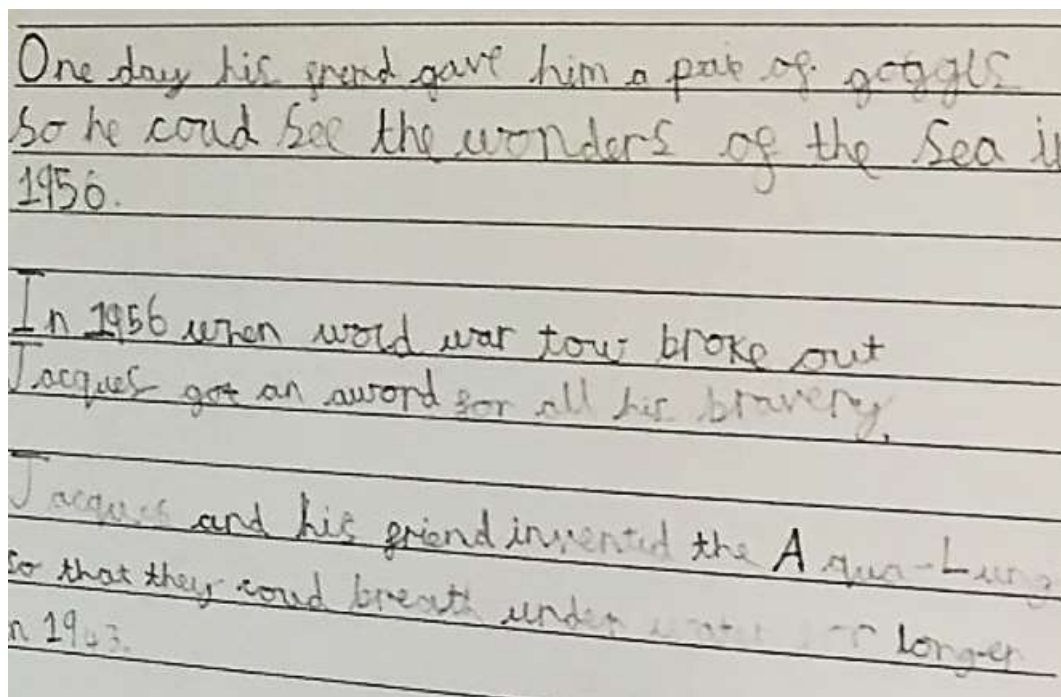 One day his frend gave him a pair of goggls
so he coud see the wonders of the sea in
1956.
In 1956 when world war tow broke out
Jacques got an aword for all his bravery.
Jacques and his friend invented the Aqua-Lung
so that they coud breath under water for longer
in 1943.